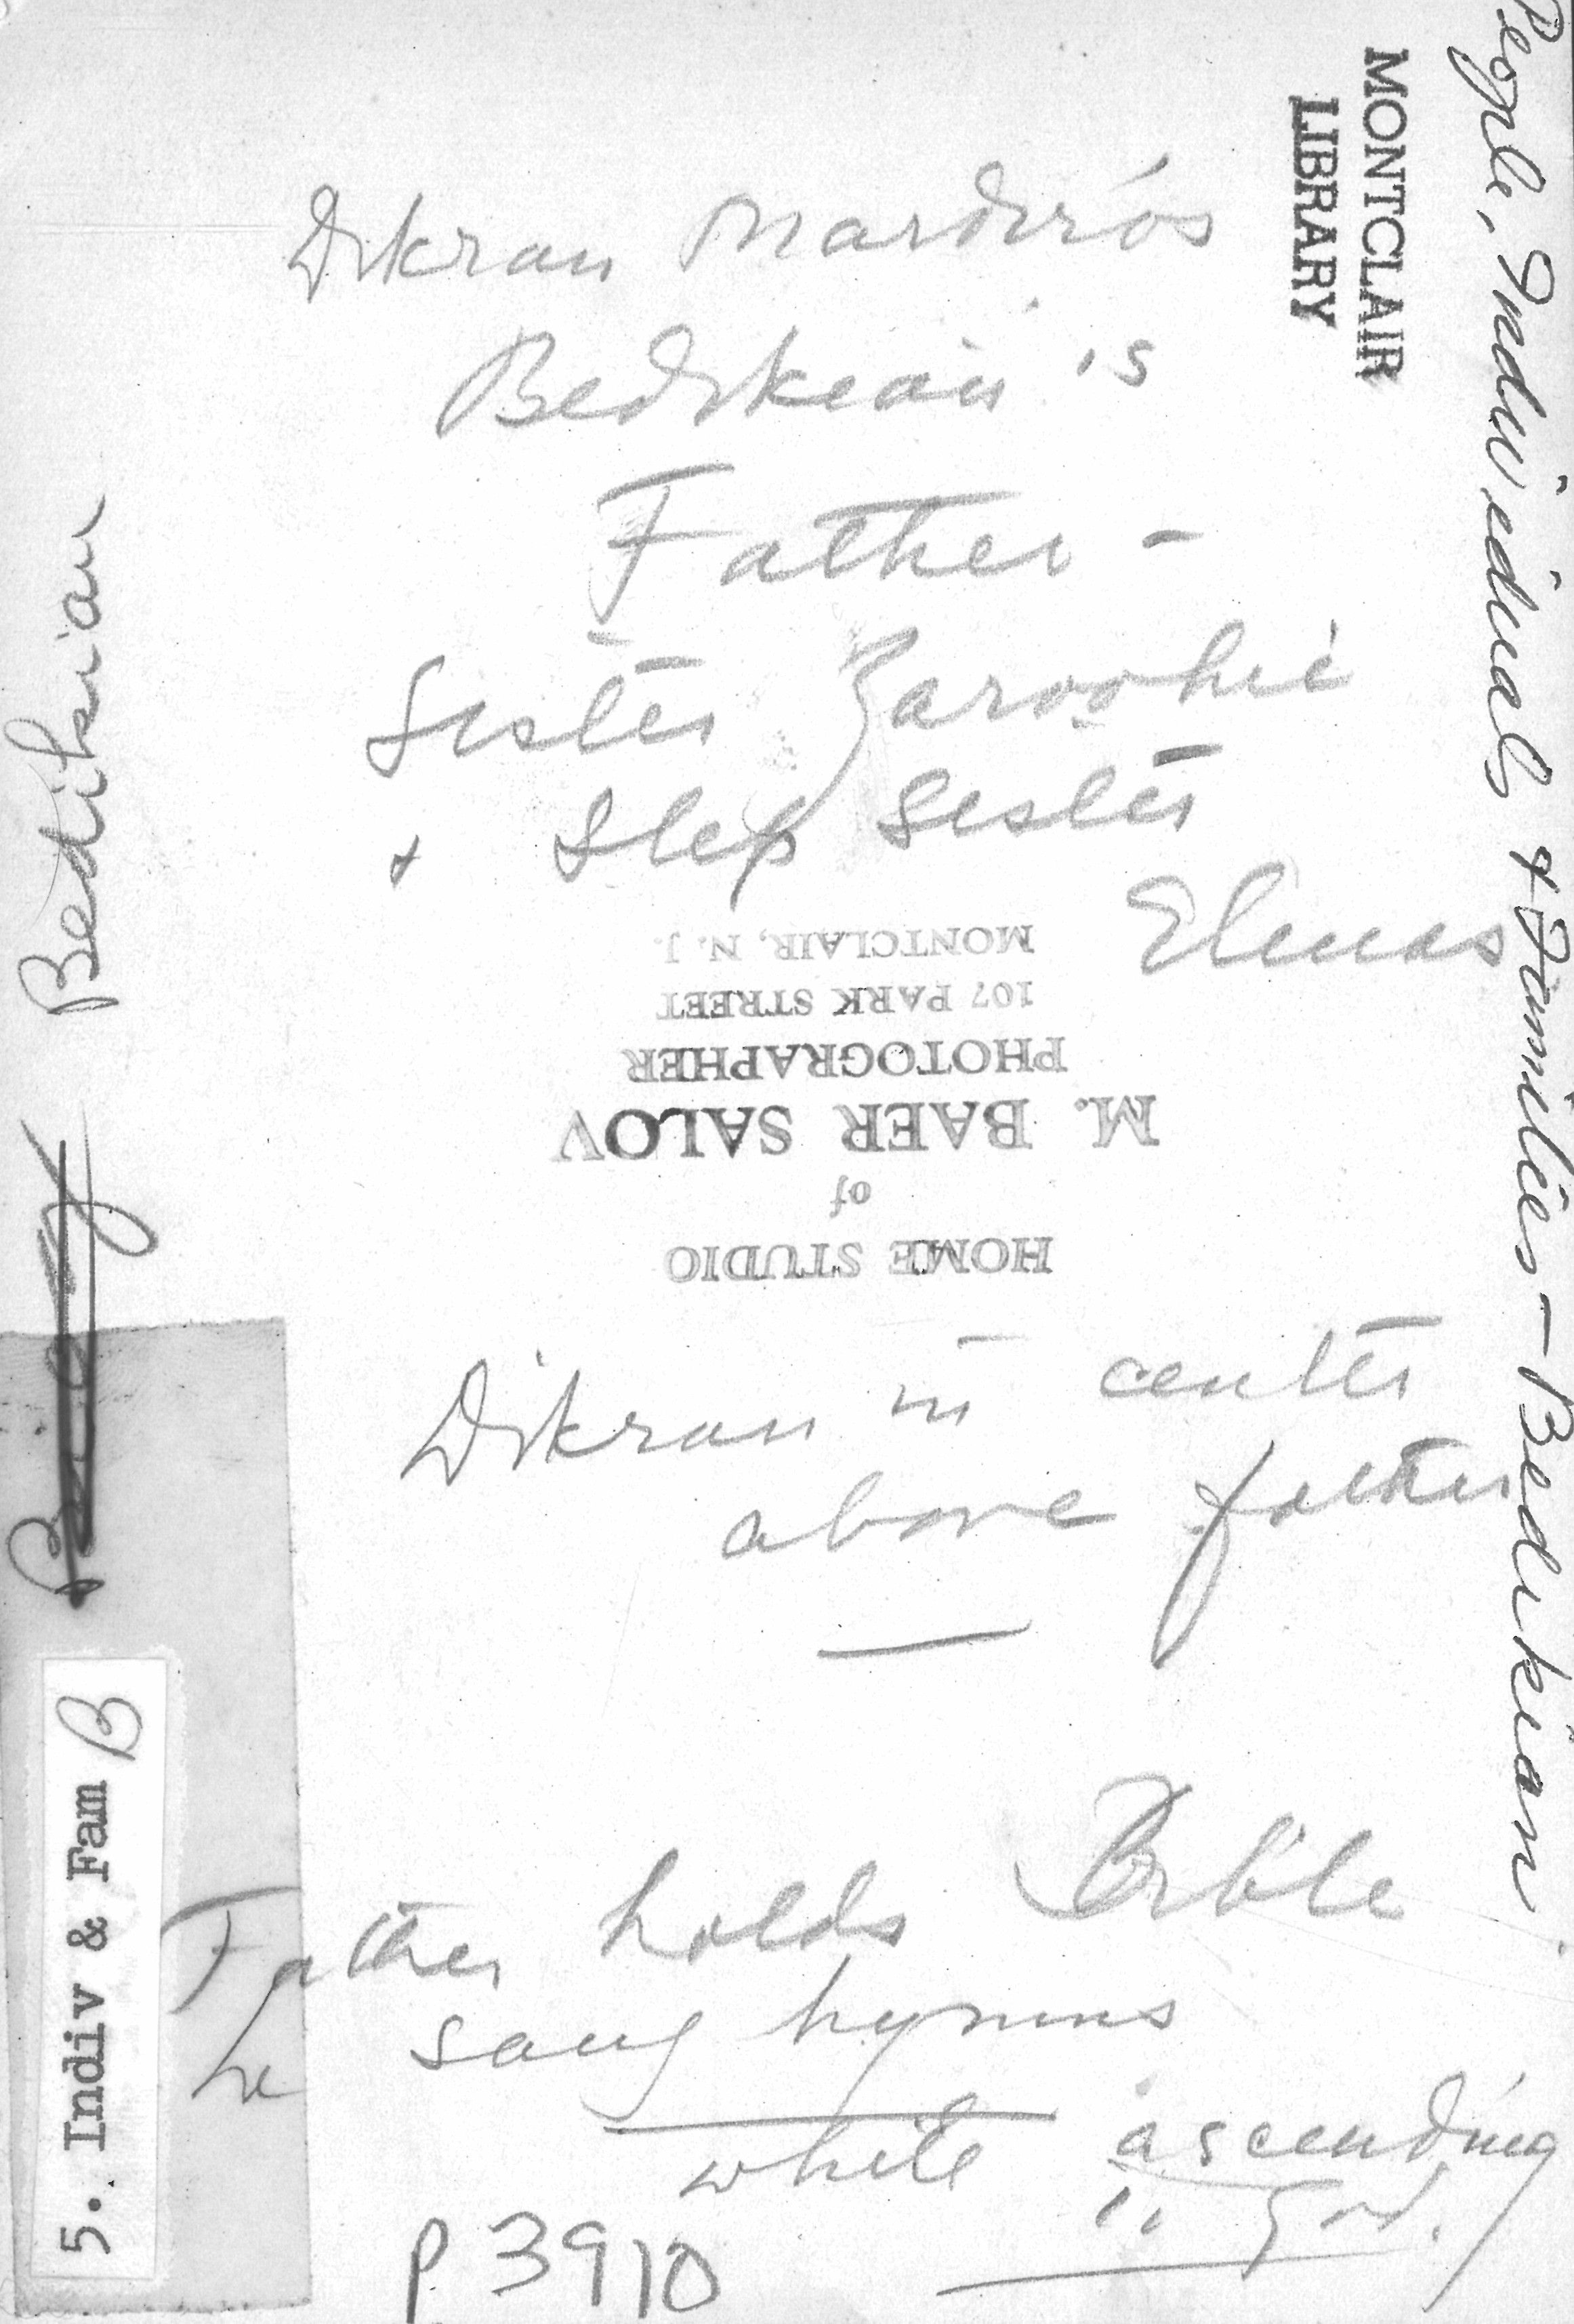 People, Individuals & Families - Bedikian
MONTCLAIR
LIBRARY
Dikran Mardiros
Bedikian's
Father -
Sister Zaroohie
+ Step Sister
Elmas
HOME STUDIO
of
M. BAER SALOV
PHOTOGRAPHER
107 PARK STREET
MONTCLAIR, N. J.
Dikran in center
above father
Father holds Bible
he sang hymns
while ascending
God.
P. 3910
Bedikian
5. Indiv & Fam B